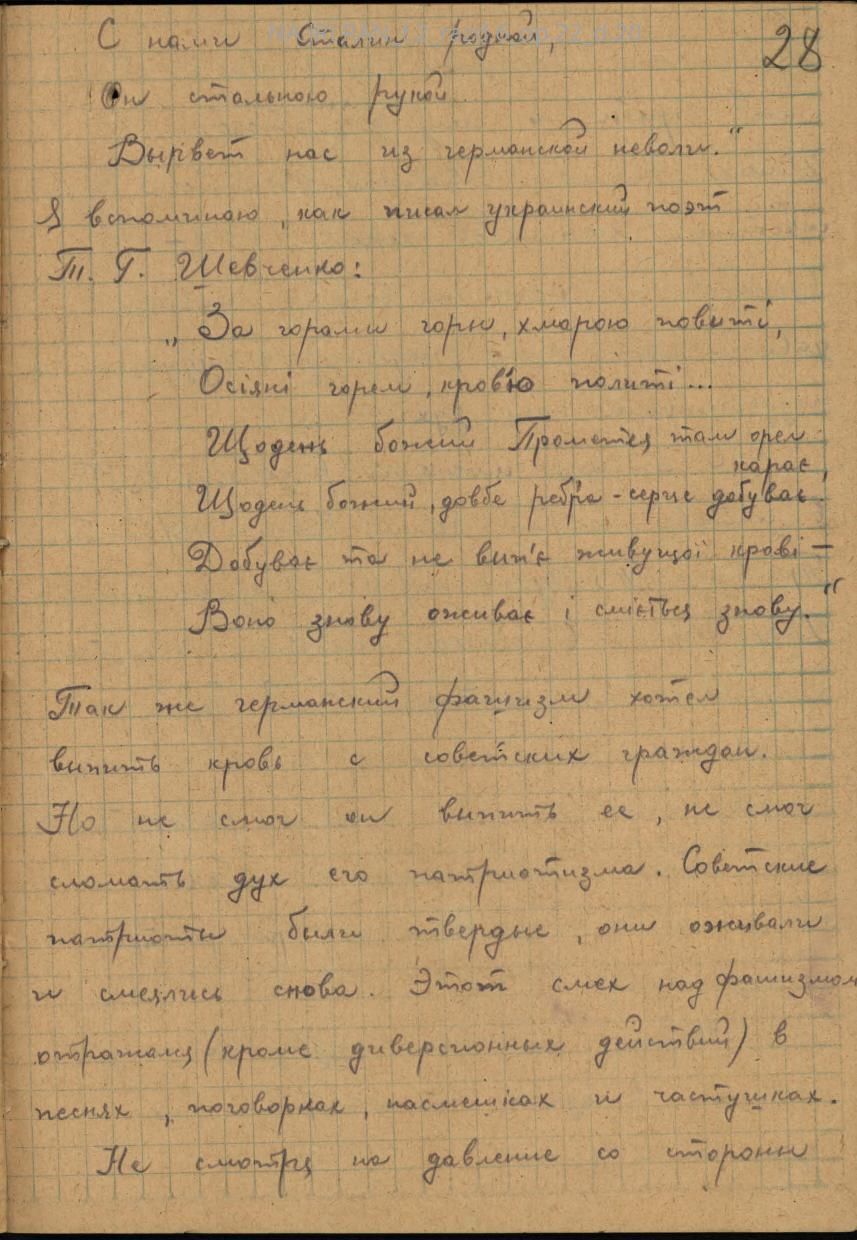 28
С нами Сталин родной,
Он стальною рукой
Вырвет нас из германской неволи."
Я вспоминаю, как писал украинский поэт
Т. Г. Шевченко:
„За горами горы, хмарою повиті,
Осіяні горем, кров'ю политі...
Щодень божий Прометея там орел
карає,
Щодень божий, довбе ребра - серце добуває.
Добуває та не вип'є живущої крові —
Воно знову оживає і сміється знову."
Так же германский фашизм хотел
выпить кровь с советских граждан.
Но не смог он выпить ее, не смог
сломать дух его патриотизма. Советские
патриоты были твердые, они оживали
и смеялись снова. Этот смех над фашизмом
отражался (кроме диверсионных действий) в
песнях, поговорках, насмешках и частушках.
Не смотря на давление со стороны